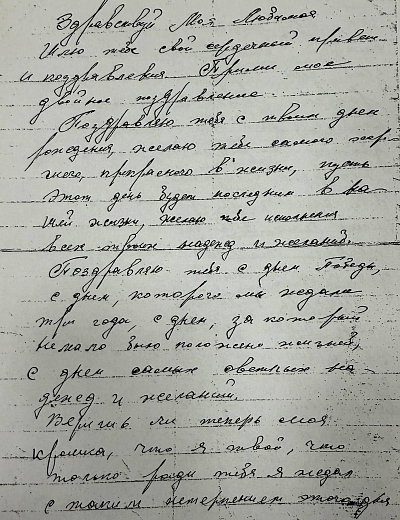 Здравствуй Моя Любимая
Шлю тебе свой сердечный привет
и поздравления. Прими мое
двойное поздравление.
Поздравляю тебя с твоим днем
рождения, желаю тебе самого
прекрасного в жизни, пусть
этот день будет последним в ва-
шей жизни, желаю тебе исполнения
всех твоих надежд и желаний.
Поздравляю тебя с днем Победы,
с днем, которого мы ждали
три года, с днем, за который
немало было положено жизней,
с днем самых светлых на-
дежд и желаний.
Веришь ли теперь моя
крошка, что я твой, что
только ради тебя я ждал
с таким нетерпением этого дня